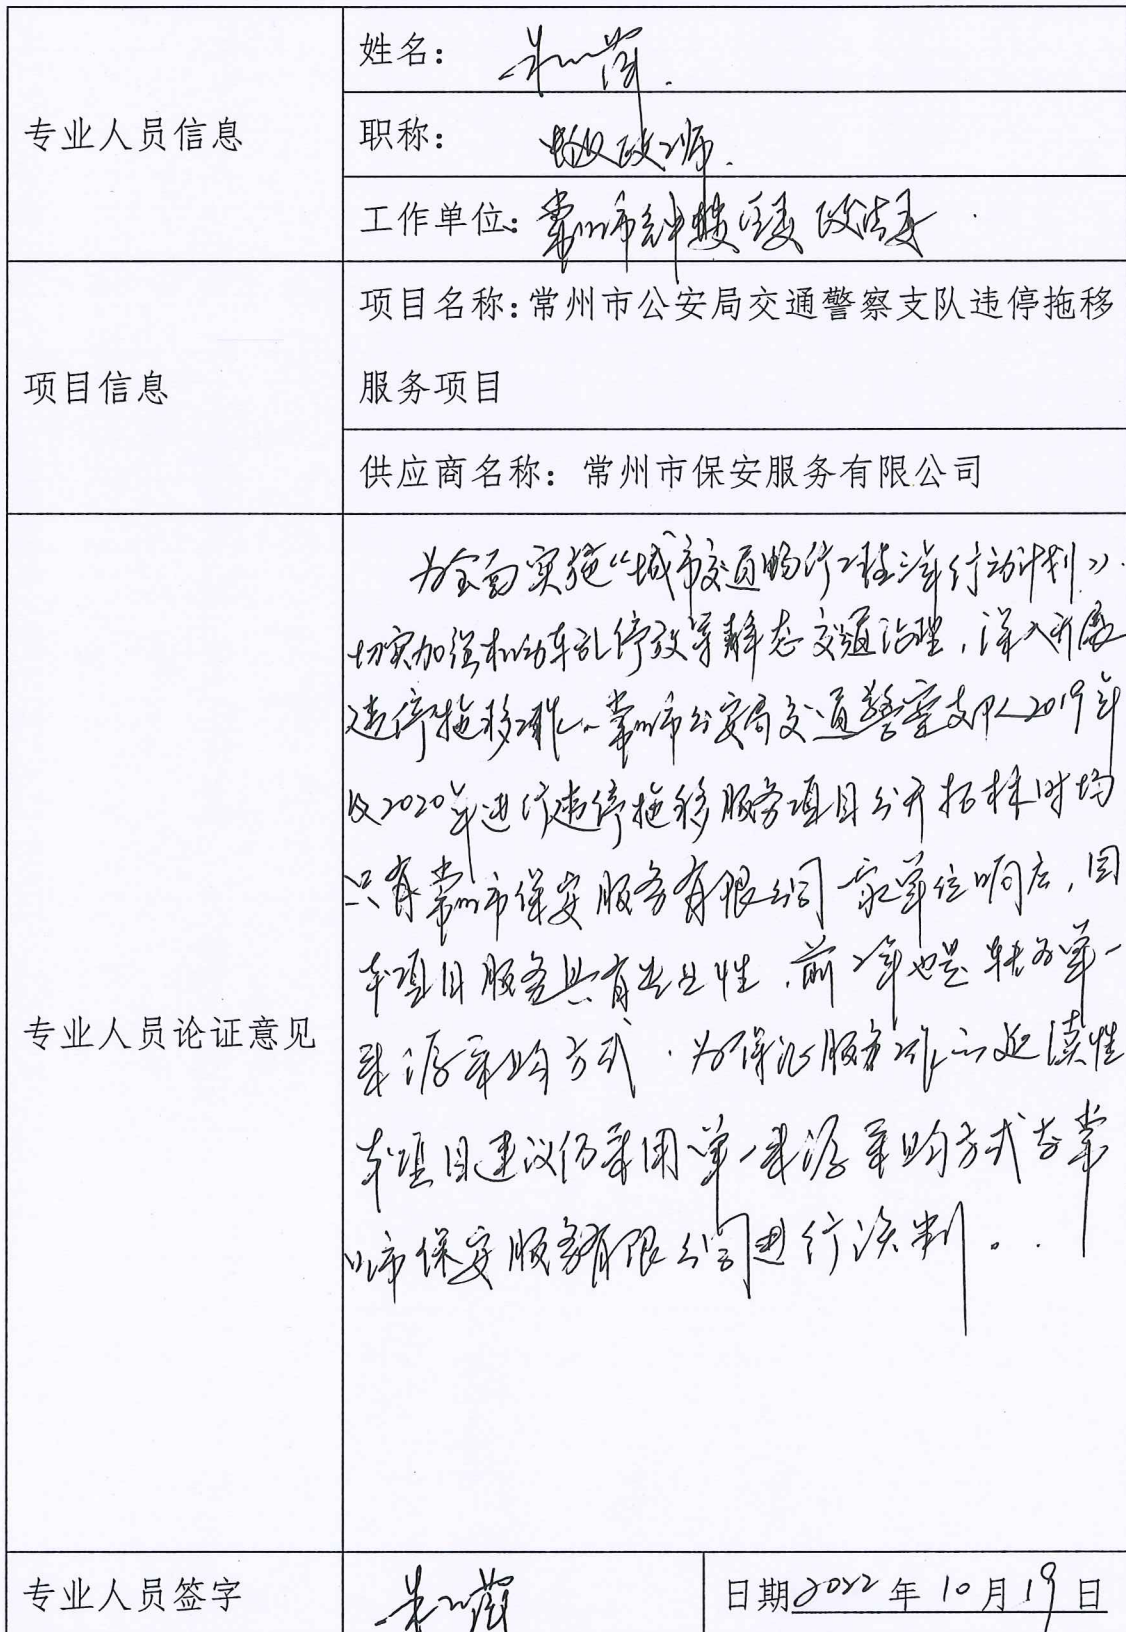 专业人员信息
姓名：
职称：
工作单位：常州市钟楼区委政法委
项目信息
项目名称：常州市公安局交通警察支队违停拖移
服务项目
供应商名称：常州市保安服务有限公司
专业人员论证意见
为全面实施“城市交通畅行工程三年行动计划”，
切实加强机动车乱停放等静态交通治理，深入开展
违停拖移工作。常州市公安局交通警察支队2019年
及2020年进行违停拖移服务项目公开招标时均
只有常州市保安服务有限公司一家单位响应，因
本项目服务具有专业性，前2年也是转为单一
来源采购方式。为保证服务工作的延续性
本项目建议仍采用单一来源采购方式与常
州市保安服务有限公司进行谈判。
专业人员签字
日期2022年10月19日